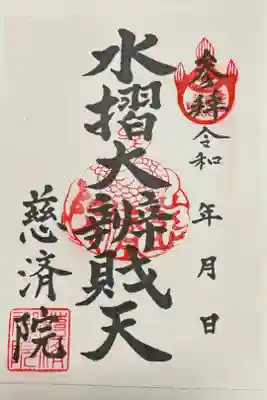 参拝
令和 年 月 日
水摺大辨財天
慈済院